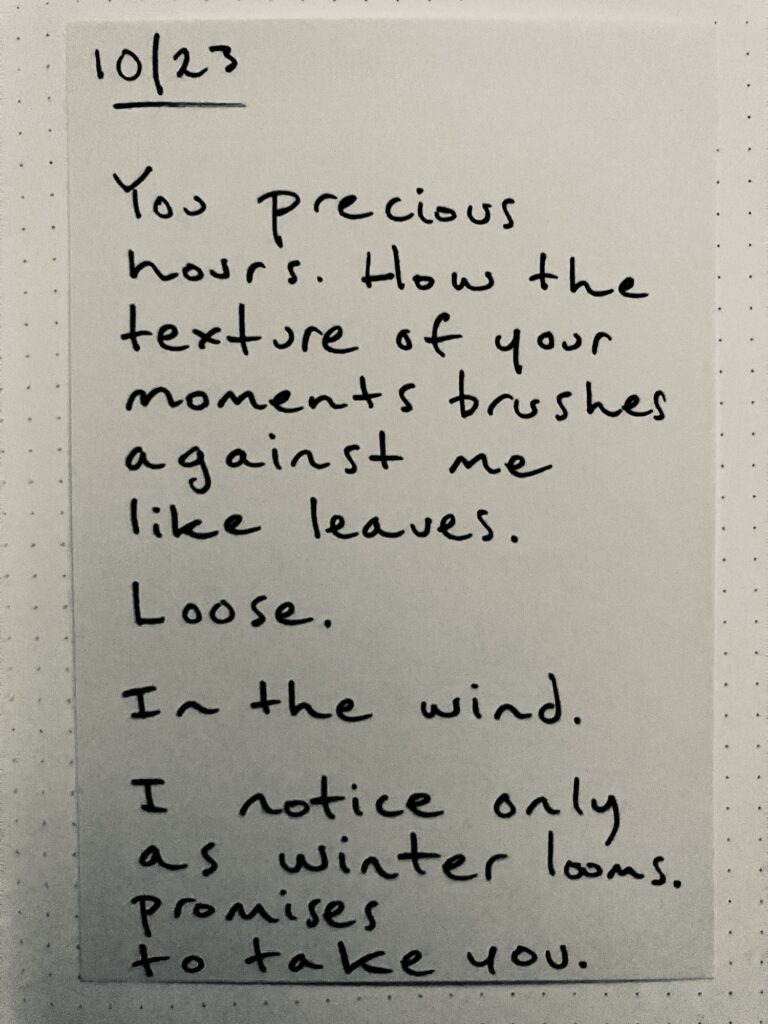 10/23
You precious
hours. How the
texture of your
moments brushes
against me
like leaves.
Loose.
In the wind.
I notice only
as winter looms.
promises
to take you.